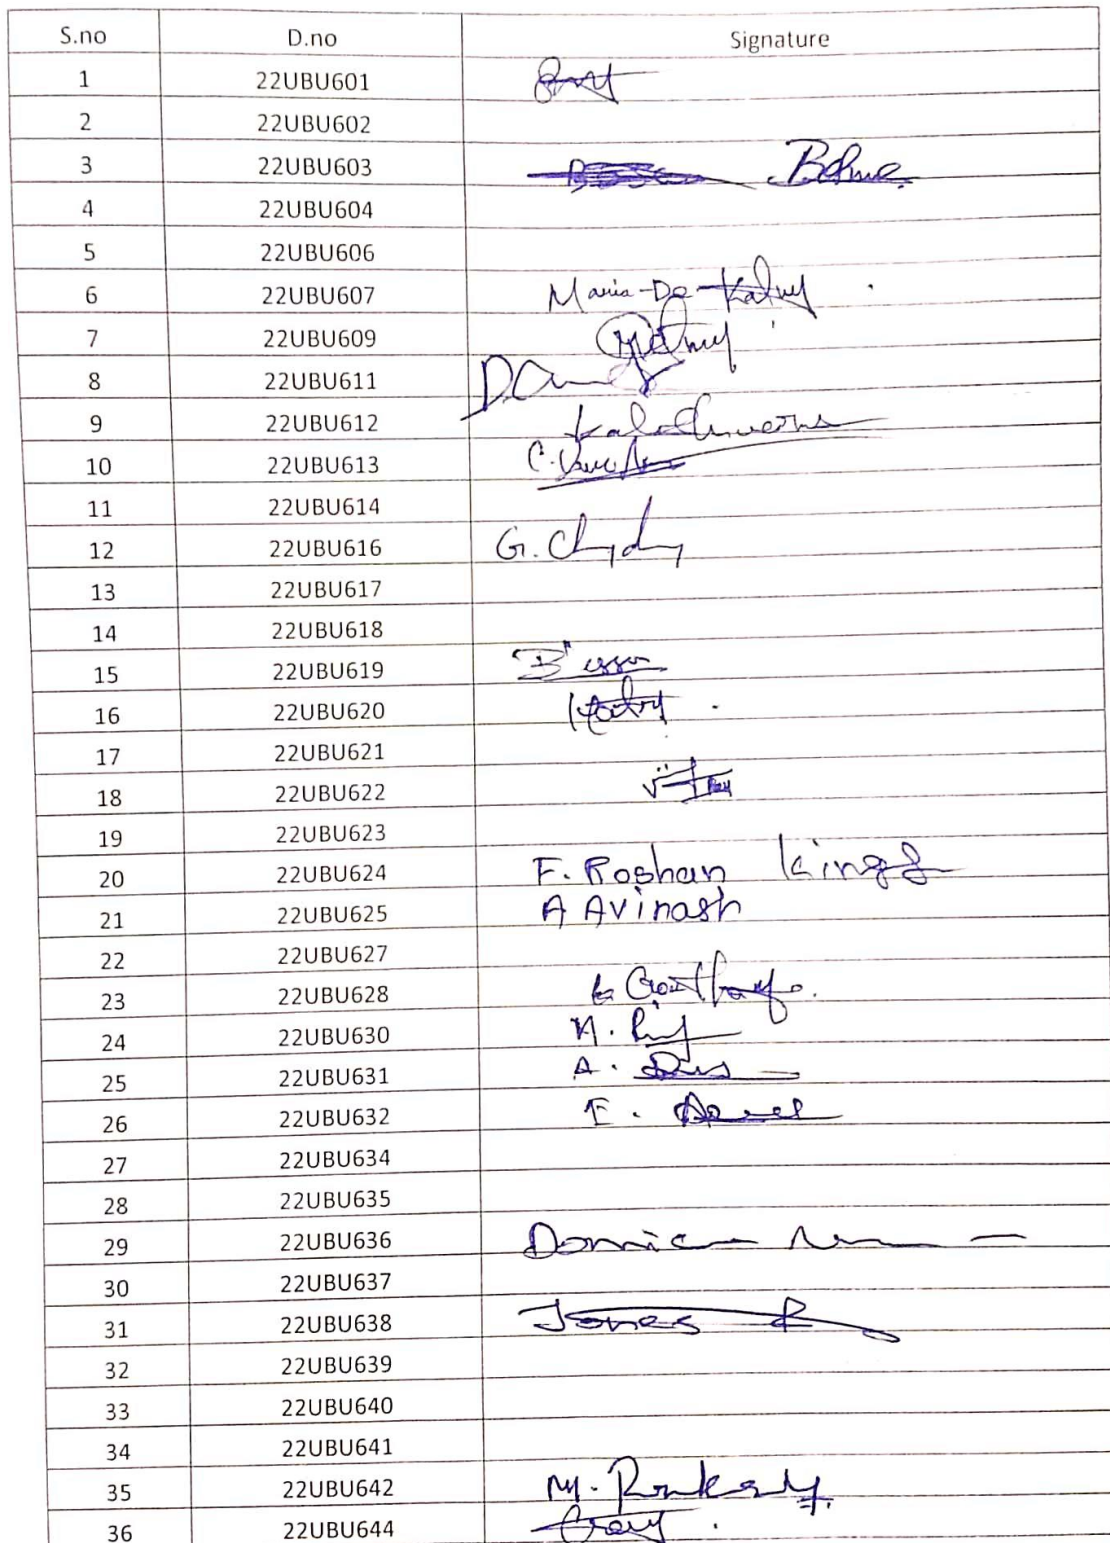 S.no D.no Signature
1 22UBU601
2 22UBU602
3 22UBU603
4 22UBU604
5 22UBU606
6 22UBU607 Maria-De-
7 22UBU609
8 22UBU611
9 22UBU612
10 22UBU613 C.
11 22UBU614
12 22UBU616 G.
13 22UBU617
14 22UBU618
15 22UBU619
16 22UBU620
17 22UBU621
18 22UBU622
19 22UBU623
20 22UBU624 F. Roshan
21 22UBU625 A Avinash
22 22UBU627
23 22UBU628
24 22UBU630
25 22UBU631 A.
26 22UBU632
27 22UBU634
28 22UBU635
29 22UBU636
30 22UBU637
31 22UBU638 Jones R
32 22UBU639
33 22UBU640
34 22UBU641
35 22UBU642 M.
36 22UBU644